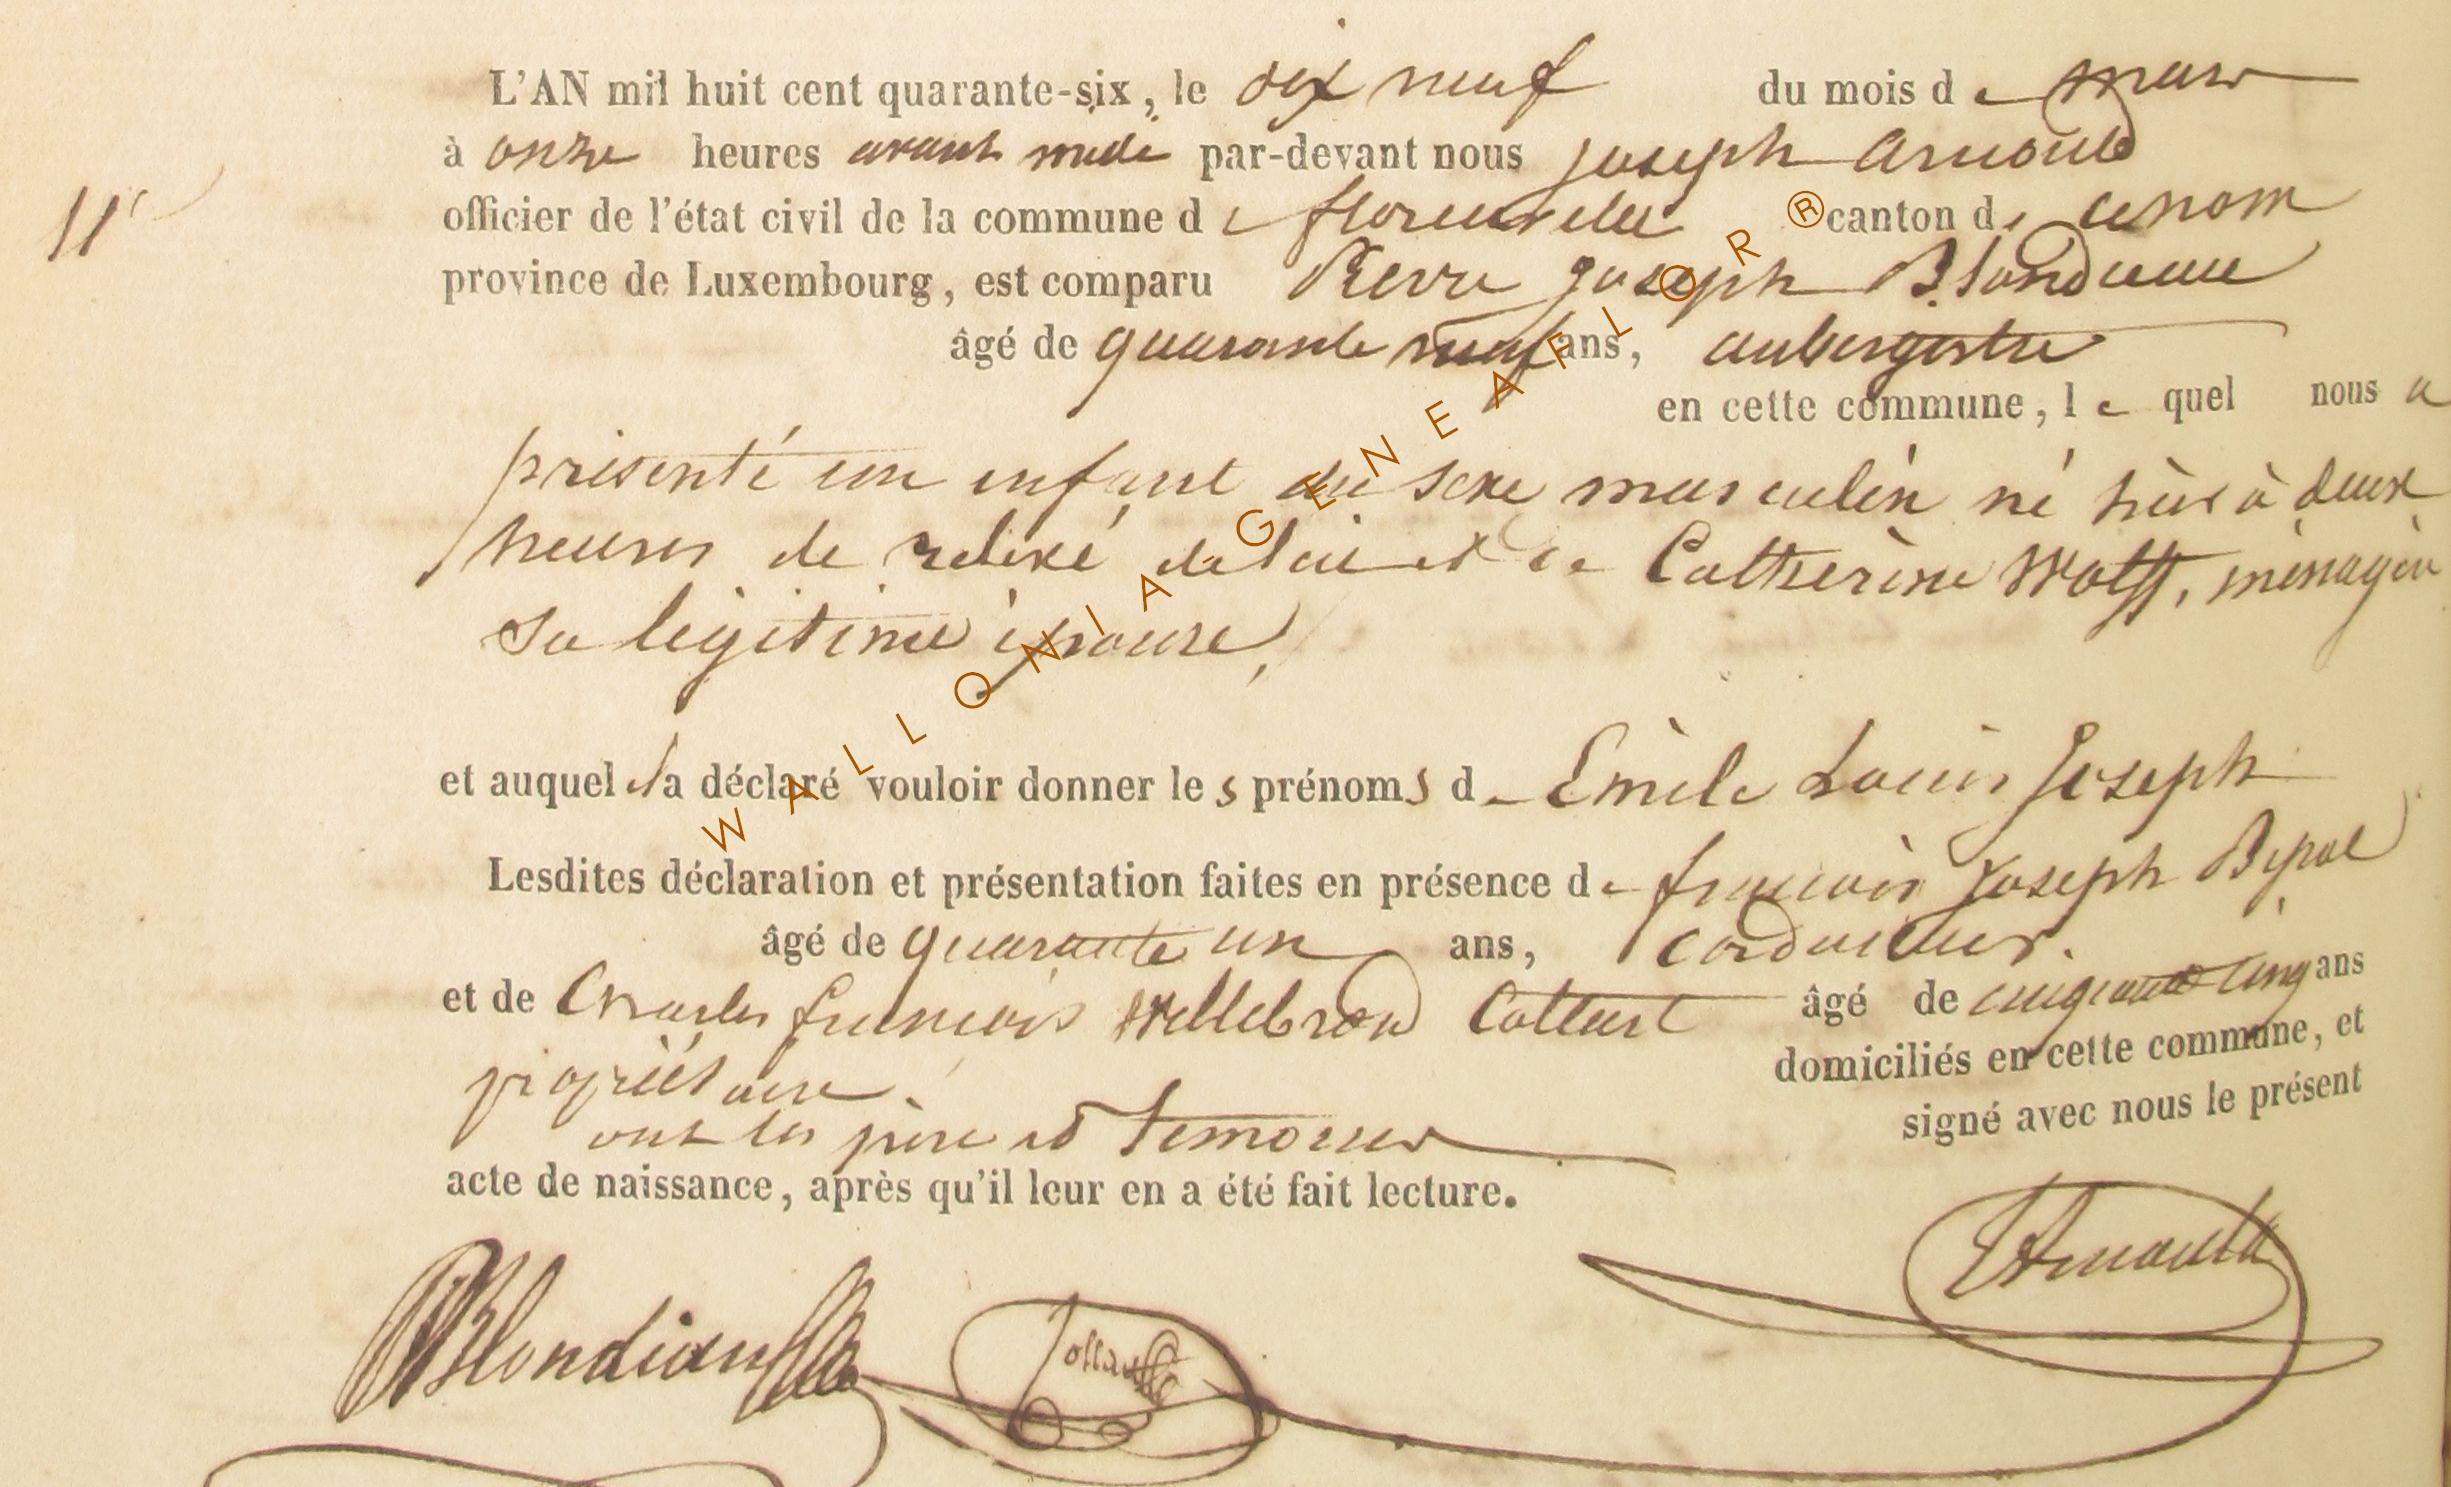 L'AN mil huit cent quarante-six, le dix neuf du mois de mars
à onze heures avant midi par-devant nous Joseph Arnould
11
officier de l'état civil de la commune de florenville canton de ce nom
province de Luxembourg, est comparu Pierre Joseph Blondiaux
âgé de quarante neuf ans, aubergiste
en cette commune, le quel nous a
présenté un enfant du sexe masculin né hier à deux
heures de relevé de lui et de Catherine Wolff, ménagère
sa légitime épouse,
et auquel il a déclaré vouloir donner les prénoms de Emile Louis Joseph
Lesdites déclaration et présentation faites en présence de françois Joseph
âgé de quarante un ans, cordonnier.
et de Charles françois Willebrord Collart âgé de cinquante cinq ans
propriétaire. domiciliés en cette commune, et
ont les père et temoins signé avec nous le présent
acte de naissance, après qu'il leur en a été fait lecture.
JArnould
Blondiaux Collart
WALLONIA GENEAFLOR ®